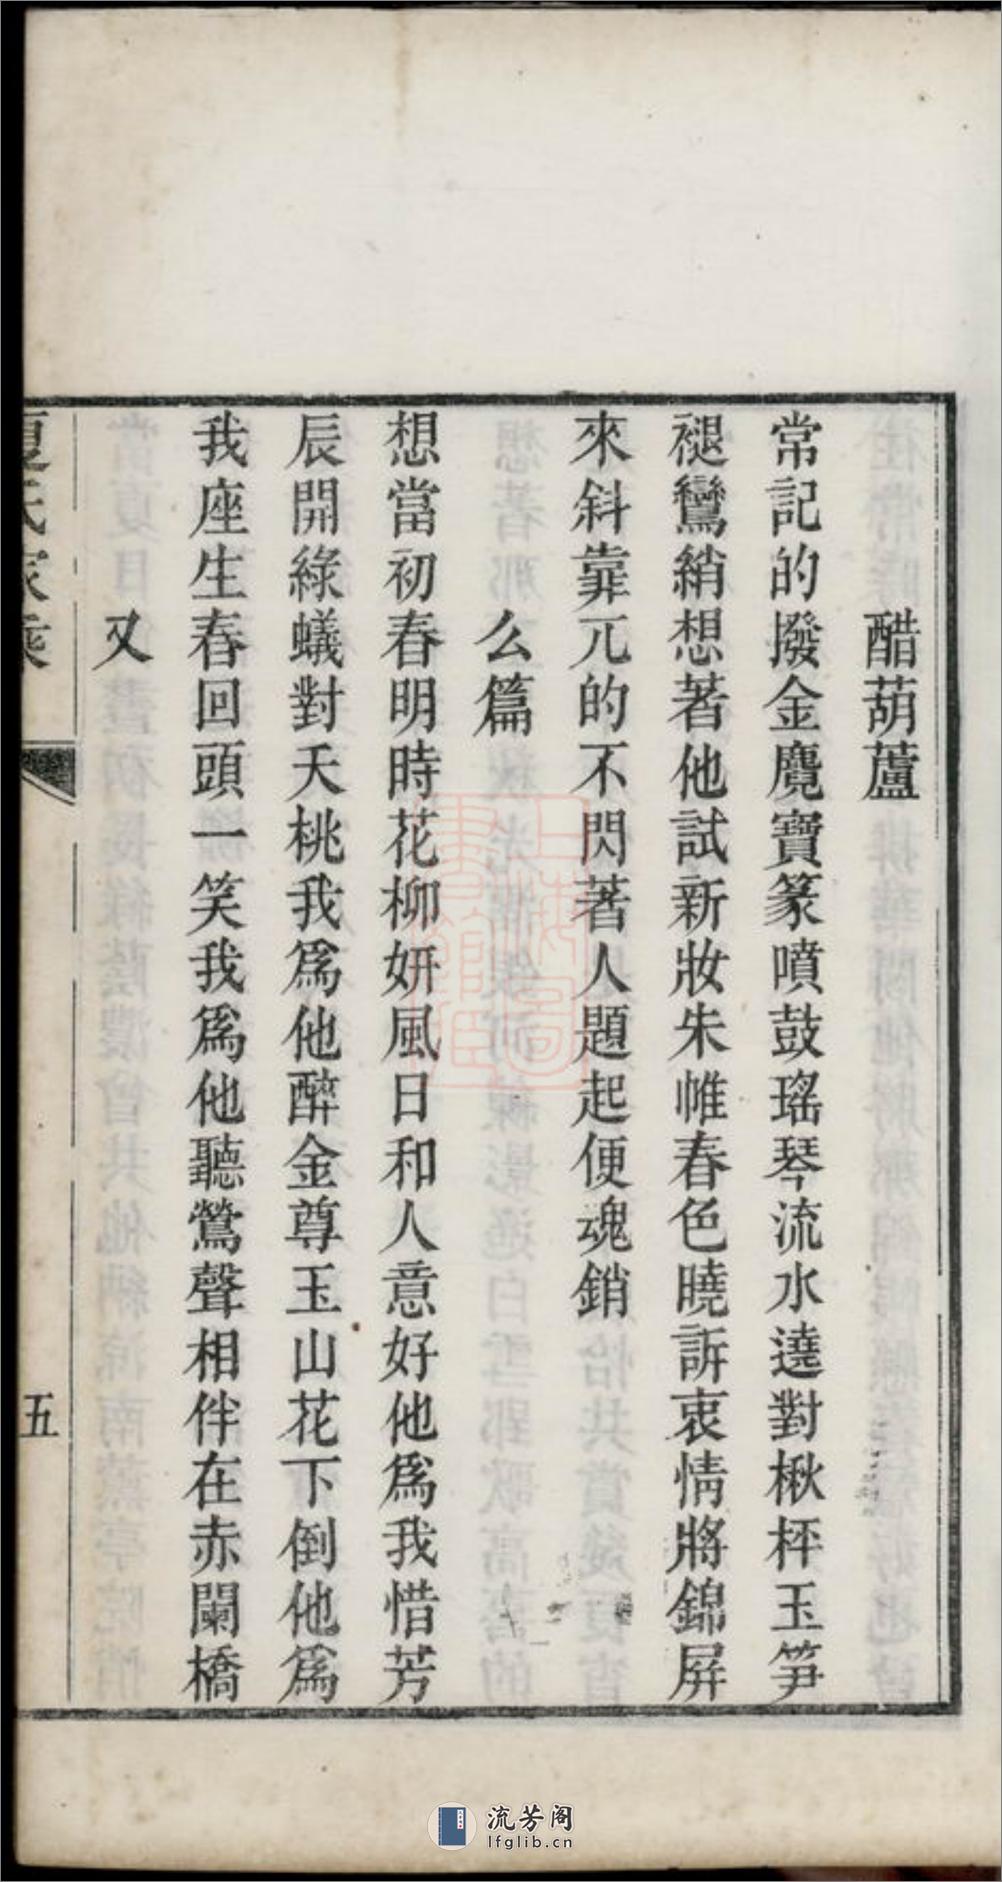 醋葫蘆
常記的撥金麑寶篆噴鼓瑤琴流水遶對楸枰玉笋
褪鸞綃想著他試新妝朱帷春色曉訴衷情將錦屏
來斜靠兀的不閃著人題起便魂銷
么篇
想當初春明時花柳妍風日和人意好他爲我惜芳
辰開綠蟻對夭桃我爲他醉金尊玉山花下倒他爲
我座生春回頭一笑我爲他聽鶯聲相伴在赤闌橋
又
夏氏家乘
五
流芳阁
lfglib.cn